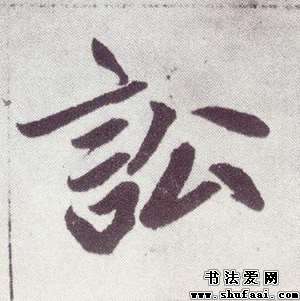 訟
书法爱网
www.shufaai.com